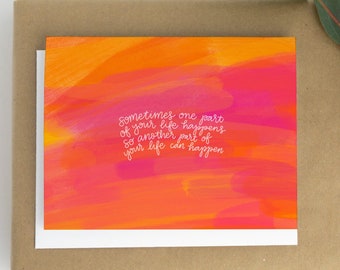 sometimes one part
of your life happens
so another part of
your life can happen